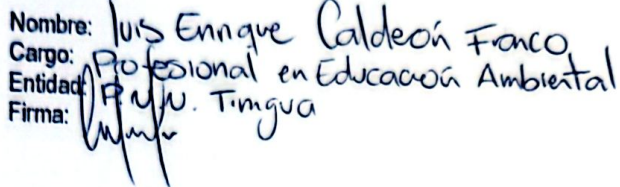 Nombre: luis Enrique Caldeón Franco
Cargo: Profesional en Educación Ambiental
Entidad: P.N.N. Tinigua
Firma: